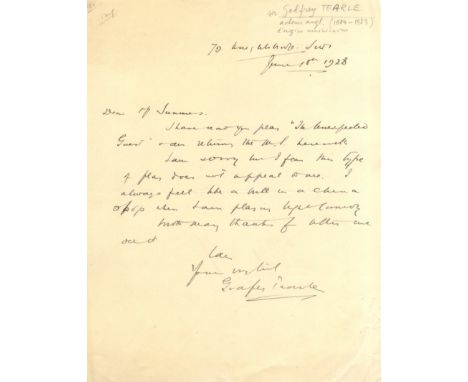 Godfrey TEARLE
acteur angl. (1884-1953)
d'origine américaine
70 Knightsbridge. SW1
June 18th 1928
Dear Mr Summers.
I have read your play "The Unexpected
Guest" & am returning the M.S. herewith
I am sorry but I fear this type
of play does not appeal to me. I
always feel like a bull in a china
shop when I am playing light comedy
With many thanks for letting me
see it
I am
Yours very truly
Godfrey Tearle